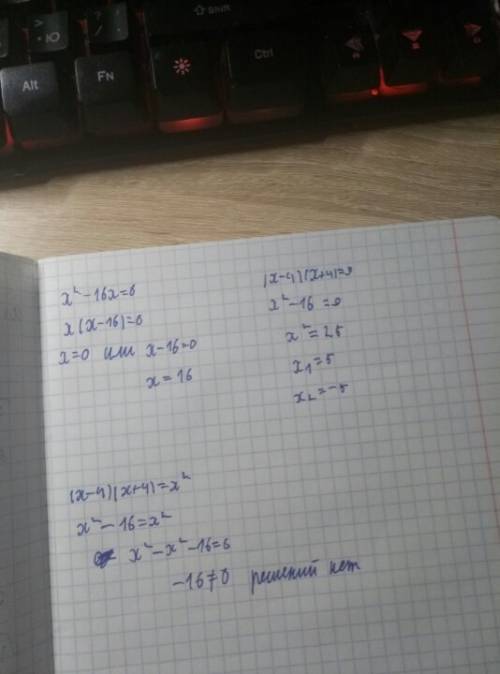 Shift
> Ю
? /
Alt
FN
Ctrl
x² - 16x = 0
x(x-16) = 0
x = 0 или x-16=0
x = 16
(x-4)(x+4)=9
x² - 16 = 9
x² = 25
x₁ = 5
x₂ = -5
(x-4)(x+4) = x²
x² - 16 = x²
x² - x² - 16 = 0
-16 ≠ 0 решений нет